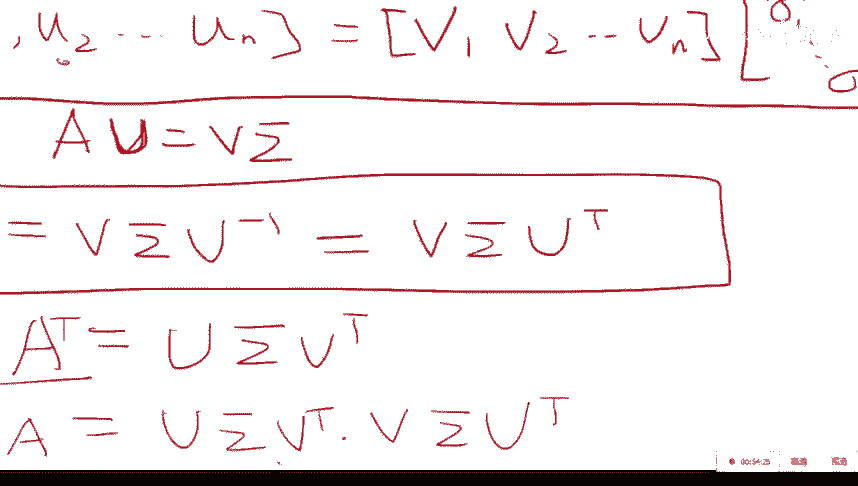 , u₂ ... uₙ] = [V₁ V₂ ... Vₙ] [σ₁ ... σ
A U = V Σ
= V Σ U⁻¹ = V Σ Uᵀ
Aᵀ = U Σ Vᵀ
A = U Σ Vᵀ · V Σ Uᵀ
00:54:25